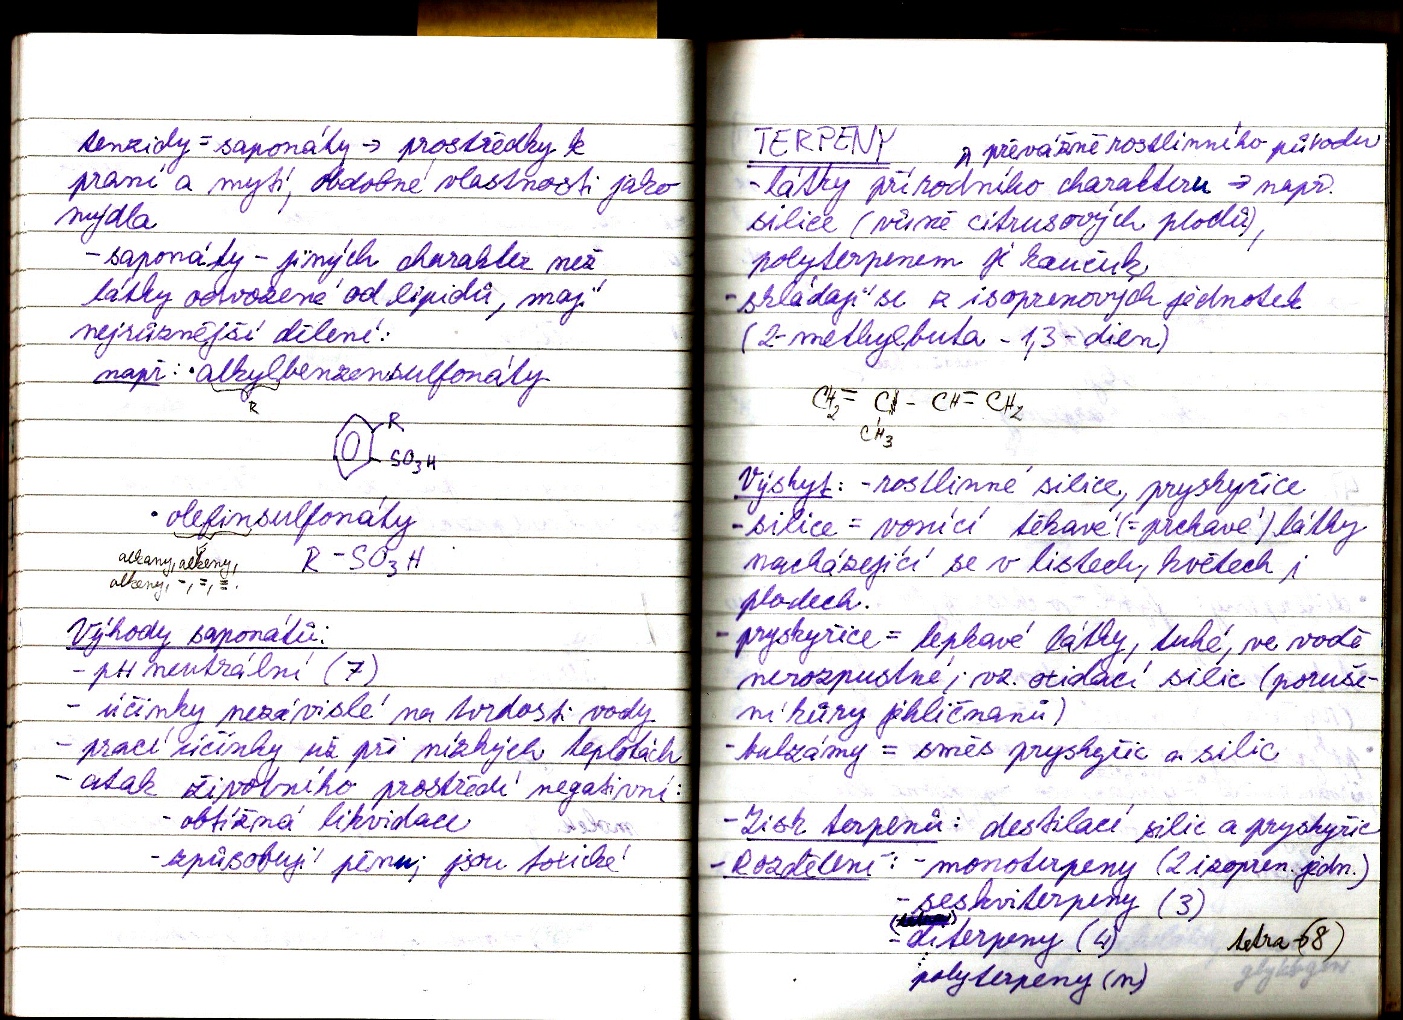 tenzidy = saponáty → prostředky k
praní a mytí, obdobné vlastnosti jako
mýdla
- saponáty - jiných charakter než
látky odvozené od lipidů, mají
nejrůznější dělení:
např.: • alkylbenzensulfonáty
R
R
SO3H
• olefinsulfonáty
alkany, alkeny,
alkeny, -, =, ≡.
R - SO3H
Výhody saponátů:
- pH neutrální (7)
- účinky nezávislé na tvrdosti vody
- prací účinky už při nízkých teplotách
- atak životního prostředí negativní:
- obtížná likvidace
- způsobují pěnu; jsou toxické
TERPENY
převážně rostlinného původu
- látky přírodního charakteru → např.
silice (vůně citrusových plodů),
polyterpenem je kaučuk
- skládají se z isoprenových jednotek
(2-methylbuta-1,3-dien)
CH2 = CH - CH = CH2
CH3
Výskyt: - rostlinné silice, pryskyřice
- silice = vonící těkavé (= prchavé) látky
nacházející se v listech, květech i
plodech.
- pryskyřice = lepkavé látky, tuhé, ve vodě
nerozpustné, vz. oxidací silic (poruše-
ní kůry jehličnanů)
- balzámy = směs pryskyřic a silic
- Zisk terpenů: destilací silic a pryskyřic
- Rozdělení: - monoterpeny (2 izopren. jedn.)
- seskviterpeny (3)
- diterpeny (4) tetra → (8)
polyterpeny (n)